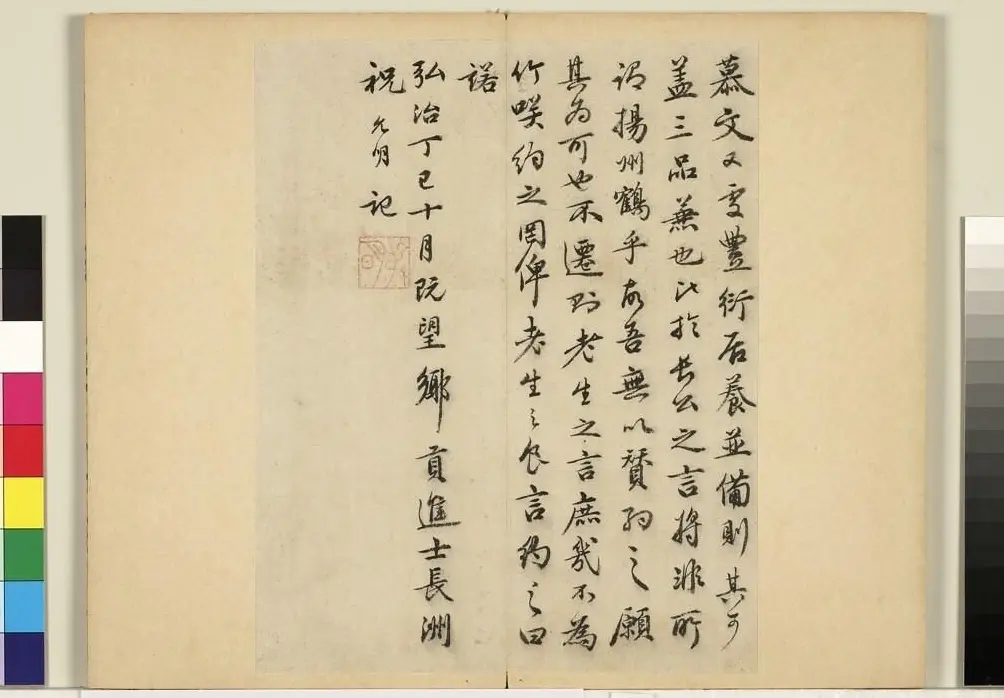 慕文又豐衍居養並備則其可
盖三品兼也比於長公之言將非所
謂揚州鶴乎故吾無以贊約之願
其為可也不遷則老生之言庶幾不為
竹咲約之罔俾老生之食言約之曰
諾
弘治丁巳十月既望鄉貢進士長洲
祝允明記